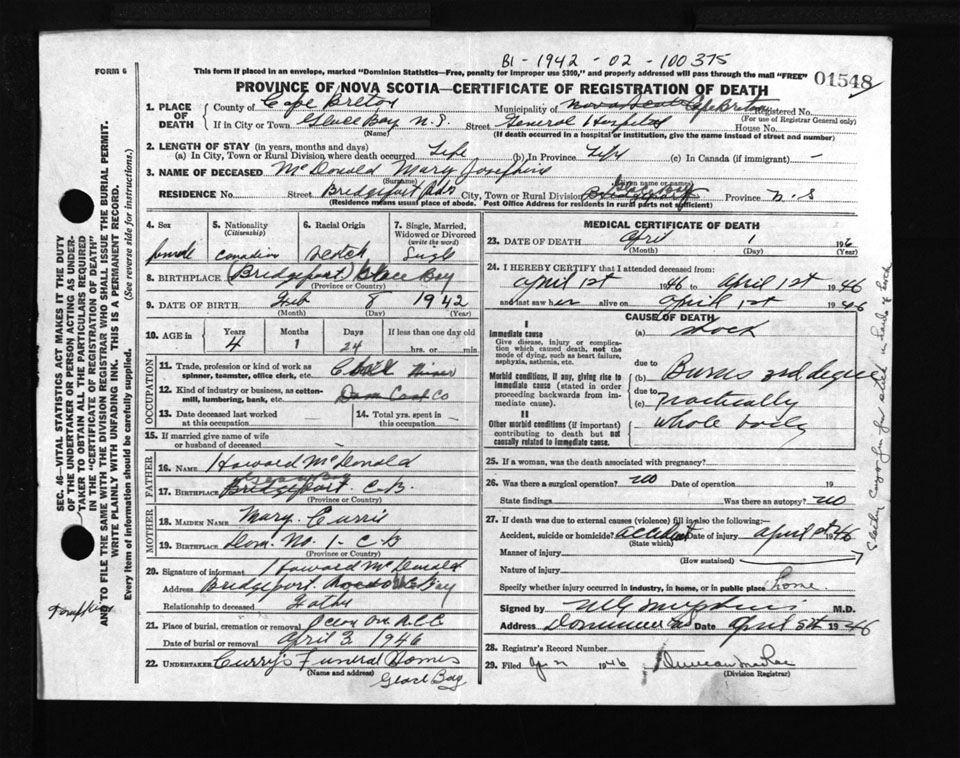 B1-1942-02-100375
FORM 6
This form if placed in an envelope, marked "Dominion Statistics—Free, penalty for improper use $300," and properly addressed will pass through the mail "FREE"
01548
PROVINCE OF NOVA SCOTIA—CERTIFICATE OF REGISTRATION OF DEATH
1. PLACE OF DEATH County of Cape Breton Municipality of Cape Breton Registered No.
(For use of Registrar General only)
If in City or Town Glace Bay N.S. Street General Hospital House No.
(Name) (If death occurred in a hospital or institution, give the name instead of street and number)
2. LENGTH OF STAY (in years, months and days)
(a) In City, Town or Rural Division where death occurred Life (b) In Province Life (c) In Canada (if immigrant) —
3. NAME OF DECEASED McDonald Mary Josephine
(Surname) (Given name or names)
RESIDENCE No. Street Bridgeport City, Town or Rural Division Glace Bay Province N.S
(Residence means usual place of abode. Post Office Address for residents in rural parts not sufficient)
4. Sex female
5. Nationality (Citizenship) Canadian
6. Racial Origin Scotch
7. Single, Married, Widowed or Divorced (write the word) Single
8. BIRTHPLACE Bridgeport Glace Bay
(Province or Country)
9. DATE OF BIRTH Feb 8 1942
(Month) (Day) (Year)
10. AGE in Years Months Days If less than one day old
4 1 24 hrs. or min.
OCCUPATION
11. Trade, profession or kind of work as spinner, teamster, office clerk, etc.
12. Kind of industry or business, as cotton-mill, lumbering, bank, etc. Dom Coal Co
13. Date deceased last worked at this occupation
14. Total yrs. spent in this occupation
15. If married give name of wife or husband of deceased —
FATHER
16. NAME Howard McDonald
17. BIRTHPLACE Bridgeport C.B.
(Province or Country)
MOTHER
18. MAIDEN NAME Mary Currie
19. BIRTHPLACE Dom. No. 1 - C-B
(Province or Country)
20. Signature of informant Howard McDonald
Address Bridgeport Bay
Relationship to deceased Father
21. Place of burial, cremation or removal
Date of burial or removal April 3 1946
22. UNDERTAKER Curry's Funeral Homes
(Name and address)
Glace Bay
MEDICAL CERTIFICATE OF DEATH
23. DATE OF DEATH April 1 1946
(Month) (Day) (Year)
24. I HEREBY CERTIFY that I attended deceased from:
April 1st 1946 to April 1st 1946
and last saw her alive on April 1st 1946
CAUSE OF DEATH
I
Immediate cause (a) Shock
Give disease, injury or complication which caused death, not the mode of dying, such as heart failure, asphyxia, asthenia, etc.
due to
Morbid conditions, if any, giving rise to immediate cause (stated in order proceeding backwards from immediate cause).
(b) Burns 3rd degree
due to
(c) practically
II
Other morbid conditions (if important) contributing to death but not causally related to immediate cause.
whole body
25. If a woman, was the death associated with pregnancy?
26. Was there a surgical operation? no Date of operation 19
State findings Was there an autopsy? no
27. If death was due to external causes (violence) fill in also the following:—
Accident, suicide or homicide? accident Date of injury April 1st 1946
(State which)
Manner of injury
(How sustained)
Nature of injury
Specify whether injury occurred in industry, in home, or in public place home
Signed by M.D.
Address Dominion Date April 5th 1946
28. Registrar's Record Number
29. Filed 1946 Duncan
(Division Registrar)
SEC. 46—VITAL STATISTICS ACT MAKES IT THE DUTY
OF THE UNDERTAKER OR PERSON ACTING AS UNDERTAKER
TO OBTAIN ALL THE PARTICULARS REQUIRED
IN THE "CERTIFICATE OF REGISTRATION OF DEATH"
AND TO FILE THE SAME WITH THE DIVISION REGISTRAR WHO SHALL ISSUE THE BURIAL PERMIT.
WRITE PLAINLY WITH UNFADING INK. THIS IS A PERMANENT RECORD.
Every item of information should be carefully supplied. (See reverse side for instructions.)